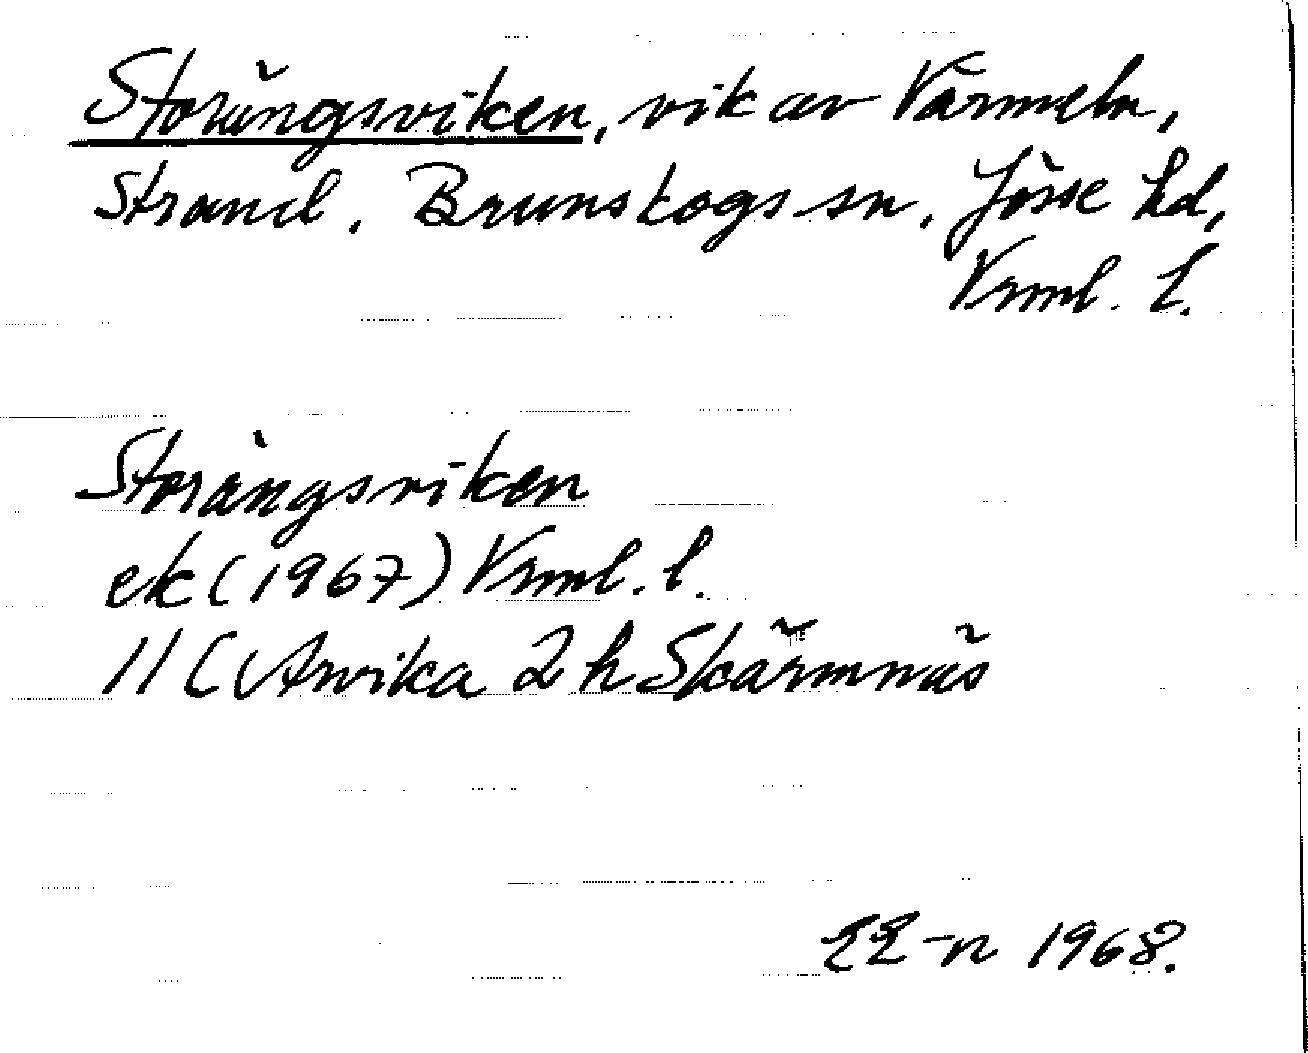 Storängsviken, vik av Värmeln,
Strand, Brunskogs sn, Jösse hd,
Vrml. l.
Storängsviken
ek (1967) Vrml. l.
11 C Arvika 2 h Skärmnäs
1968.